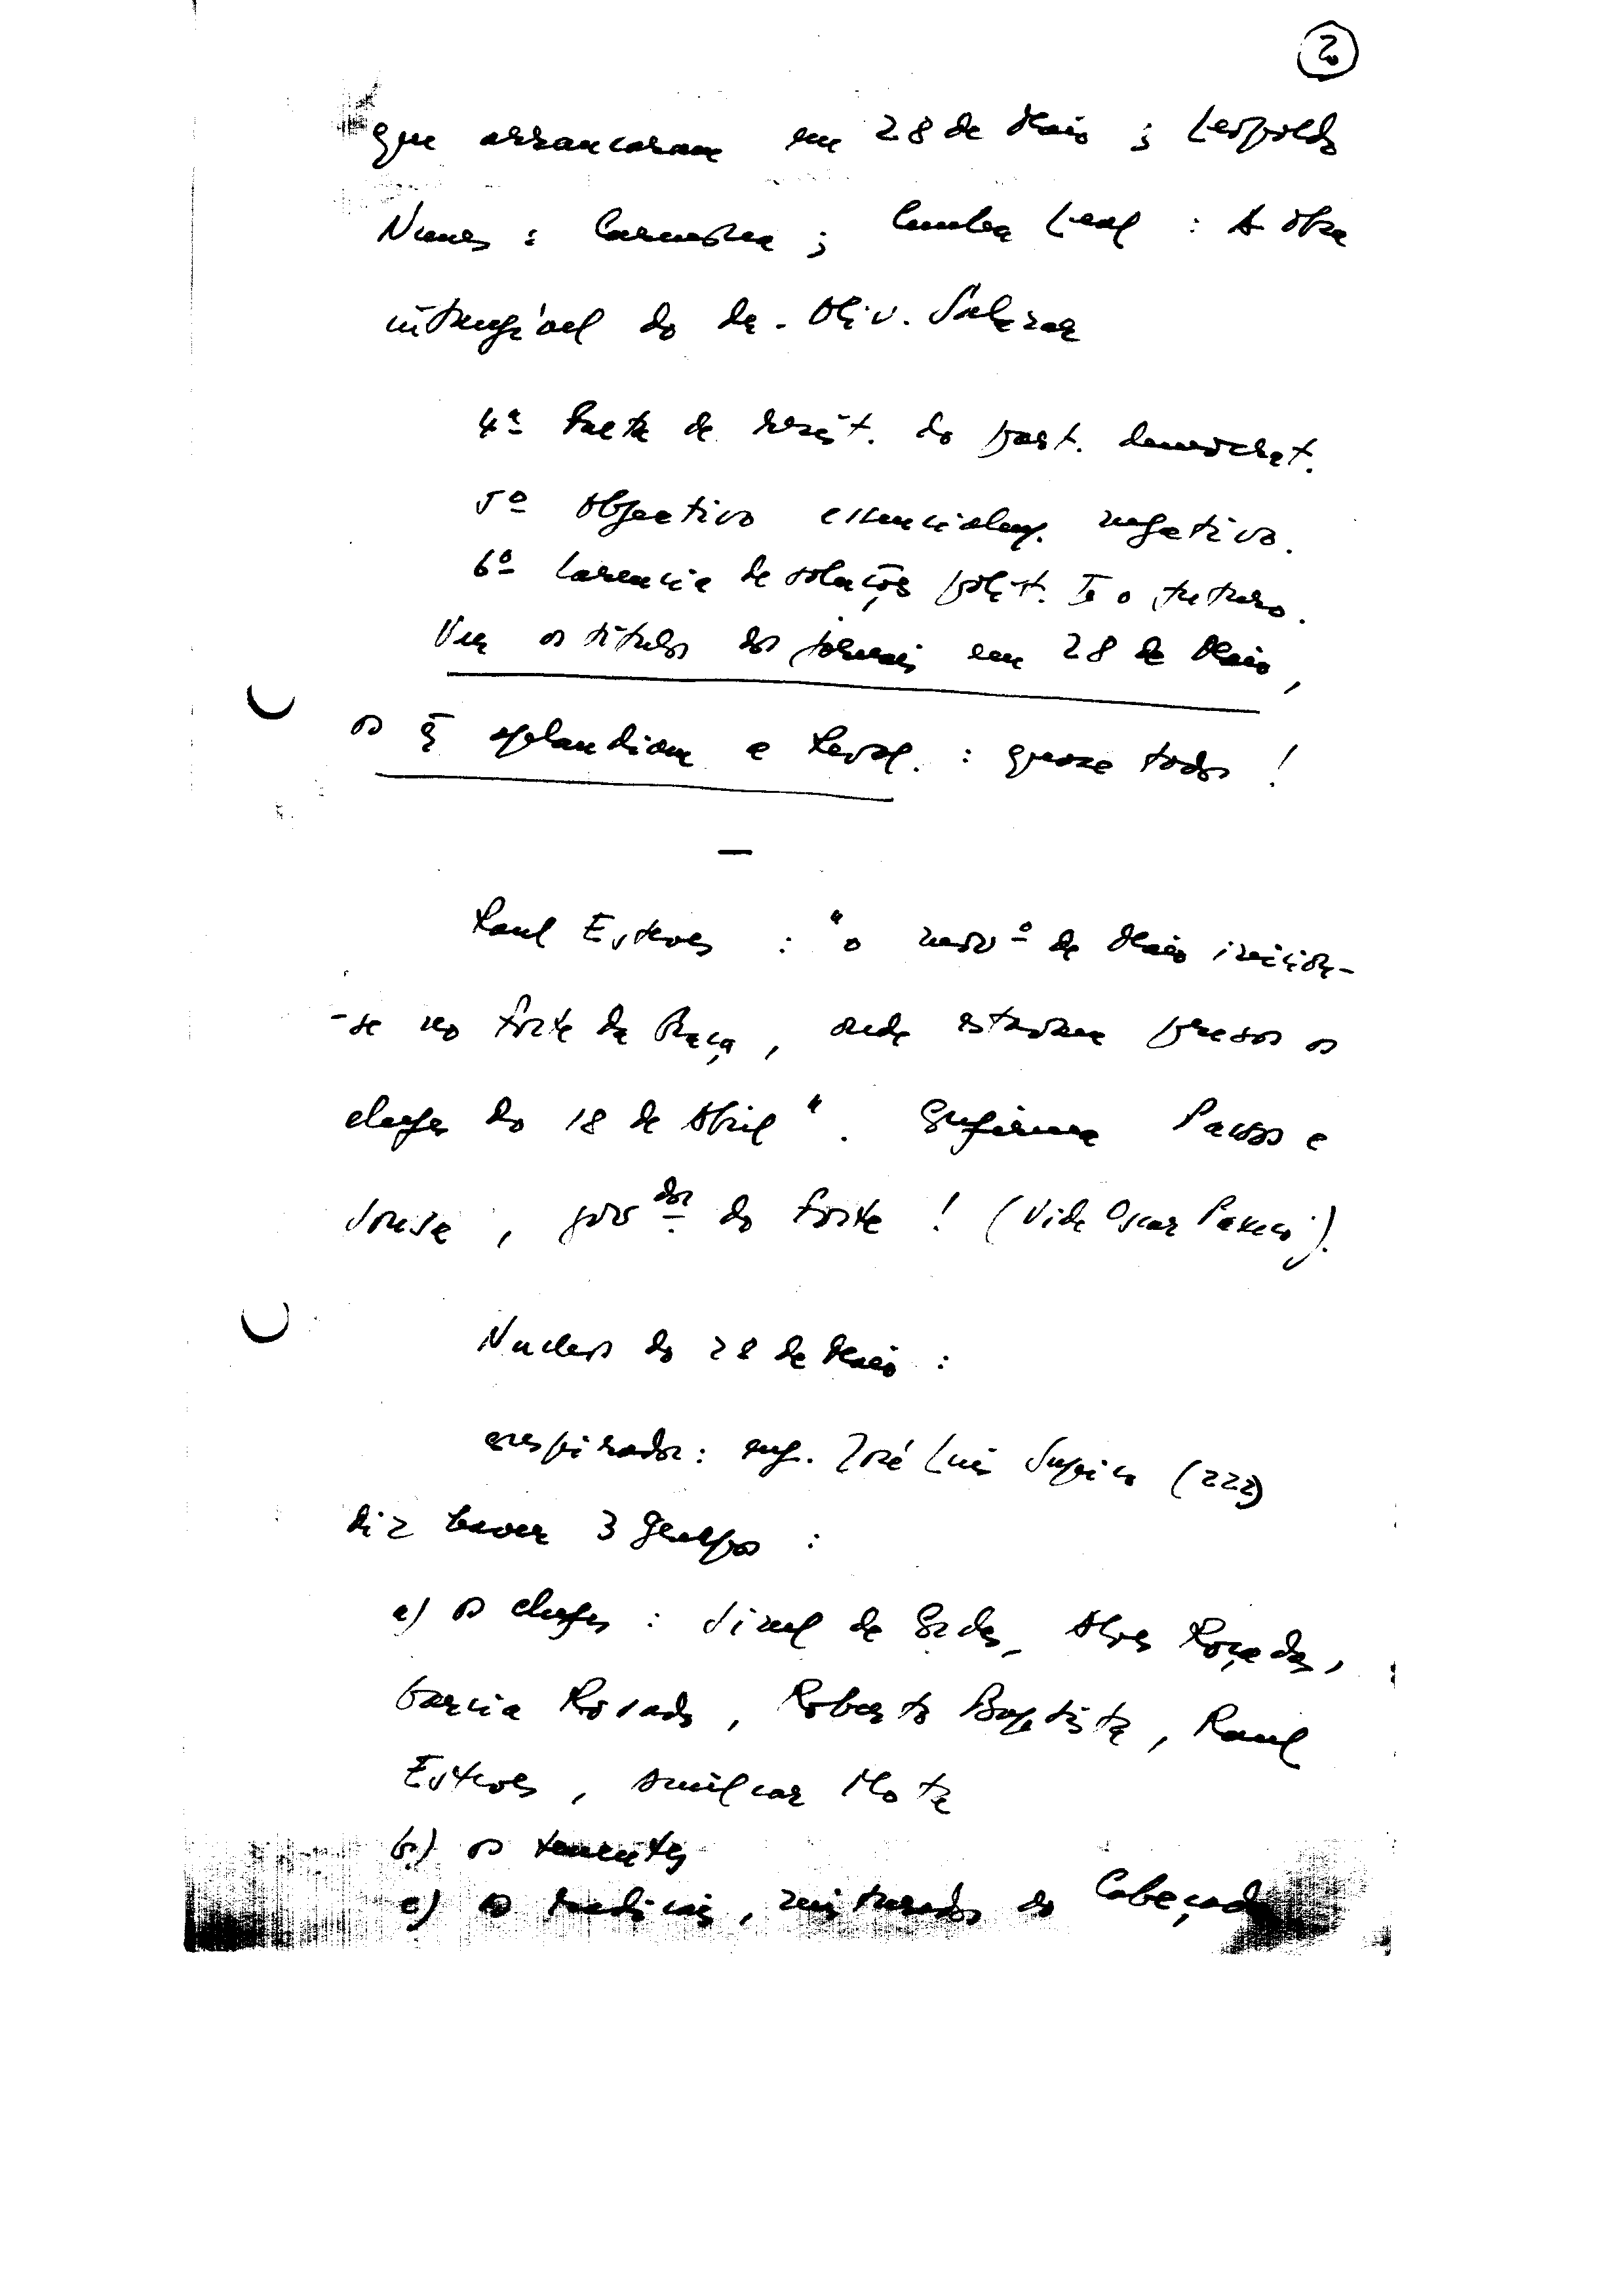 2
que arrancaram em 28 de Maio ; Leopoldo
Nunes : Carmona ; Cunha Leal : A obra
intangível do dr. Oliv. Salazar
4ª Falta de resist. do part. democrat.
5º Objectivo essencialm. negativo.
6º Carencia de soluções polít. p o futuro.
Ver os titulos dos jornais em 28 de Maio,
os q̃ aplaudiam a Revol. : quase todos !
—
Raul Esteves : "o movº de Maio iniciou-
-se no forte da Graça, onde estavam presos os
chefes do 18 de Abril". Passos e
Sousa, govdor do forte ! (Vide Oscar Paxeco).
Nucleos do 28 de Maio :
conspirador : eng. José Luis Supico (222)
diz haver 3 grupos :
a) os chefes : Sinel de Cordes, Alves Roçadas,
Garcia Rosado, Roberto Baptista, Raul
Esteves, Amilcar Mota
b) os tenentes
c) os radicais, misturados do Cabeçadas